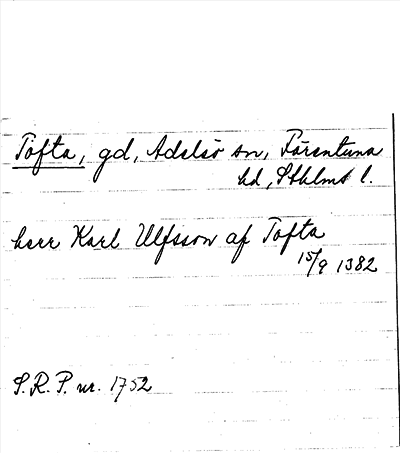 Tofta, gd, Adelsö sn, Färentuna
hd, Sthlms l.
herr Karl Ulfsson af Tofta
15/9 1382
S.R.P. nr. 1752